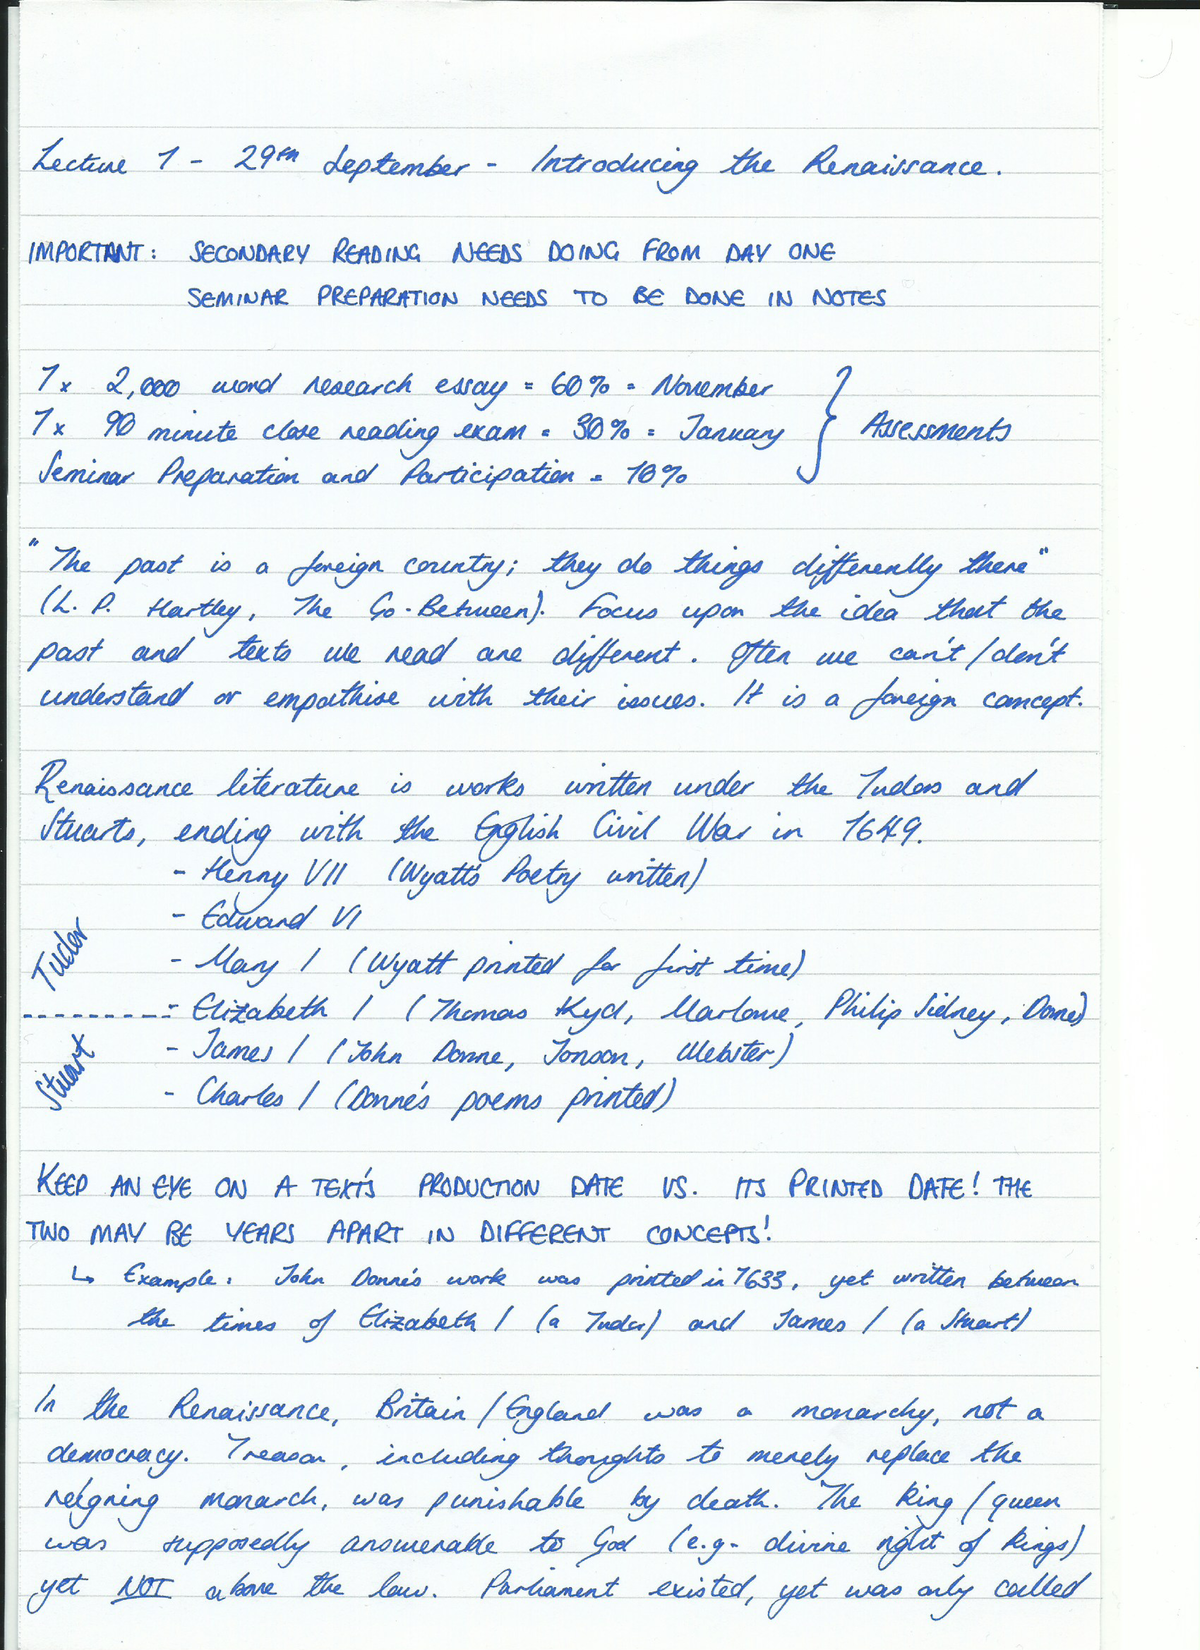 Lecture 1 - 29th September - Introducing the Renaissance.
IMPORTANT: SECONDARY READING NEEDS DOING FROM DAY ONE
SEMINAR PREPARATION NEEDS TO BE DONE IN NOTES
1x 2,000 word research essay = 60% = November
1x 90 minute close reading exam = 30% = January } Assessments
Seminar Preparation and Participation = 10%
"The past is a foreign country; they do things differently there"
(L. P. Hartley, The Go-Between). Focus upon the idea that the
past and texts we read are different. Often we can't/don't
understand or empathise with their issues. It is a foreign concept.
Renaissance literature is works written under the Tudors and
Stuarts, ending with the English Civil War in 1649.
- Henry VII (Wyatt's Poetry written)
- Edward VI
Tudor
- Mary I (Wyatt printed for first time)
- Elizabeth I (Thomas Kyd, Marlowe, Philip Sidney, Donne)
- James I (John Donne, Jonson, Webster)
Stuart
- Charles I (Donne's poems printed)
KEEP AN EYE ON A TEXT'S PRODUCTION DATE VS. ITS PRINTED DATE! THE
TWO MAY BE YEARS APART IN DIFFERENT CONCEPTS!
↳ Example: John Donne's work was printed in 1633, yet written between
the times of Elizabeth I (a Tudor) and James I (a Stuart)
In the Renaissance, Britain/England was a monarchy, not a
democracy. Treason, including thoughts to merely replace the
reigning monarch, was punishable by death. The king/queen
was supposedly answerable to God (e.g. divine right of kings)
yet NOT above the law. Parliament existed, yet was only called